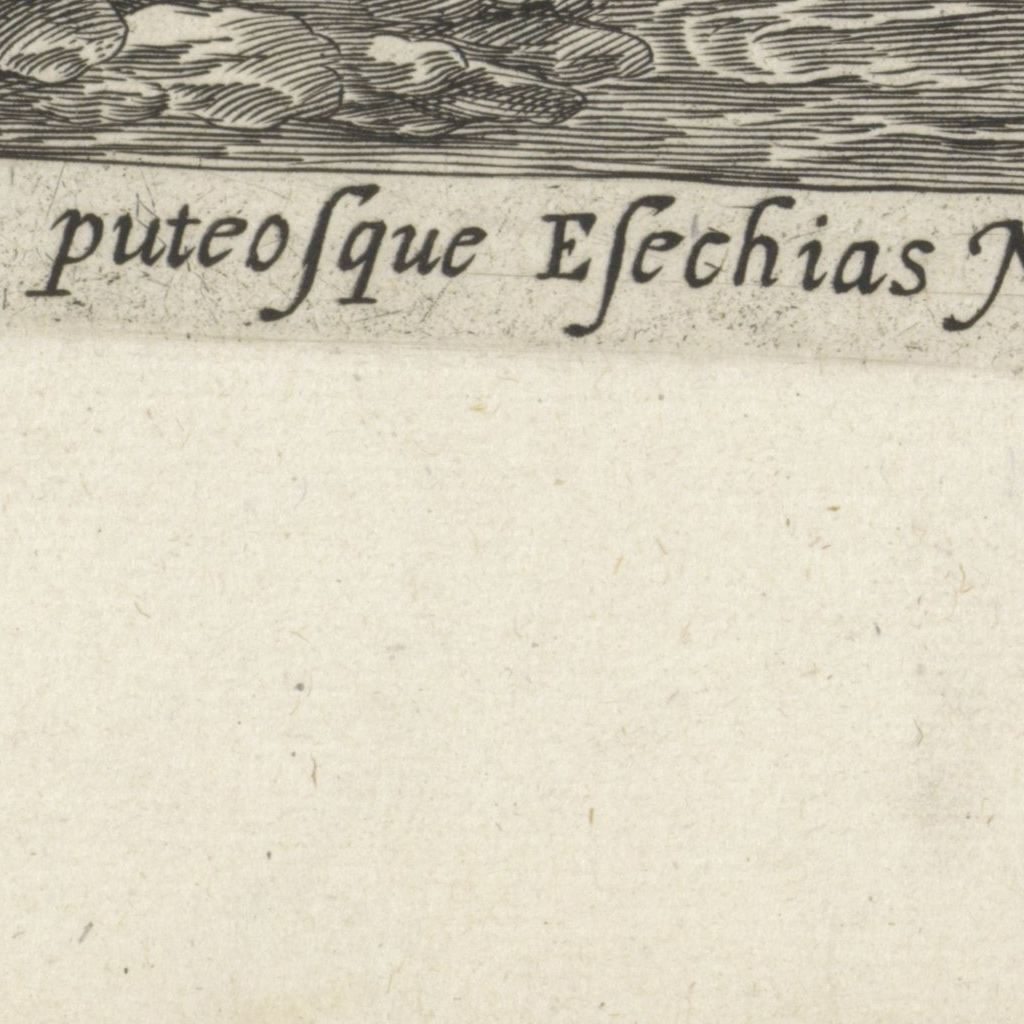 puteoſque Eſechias N